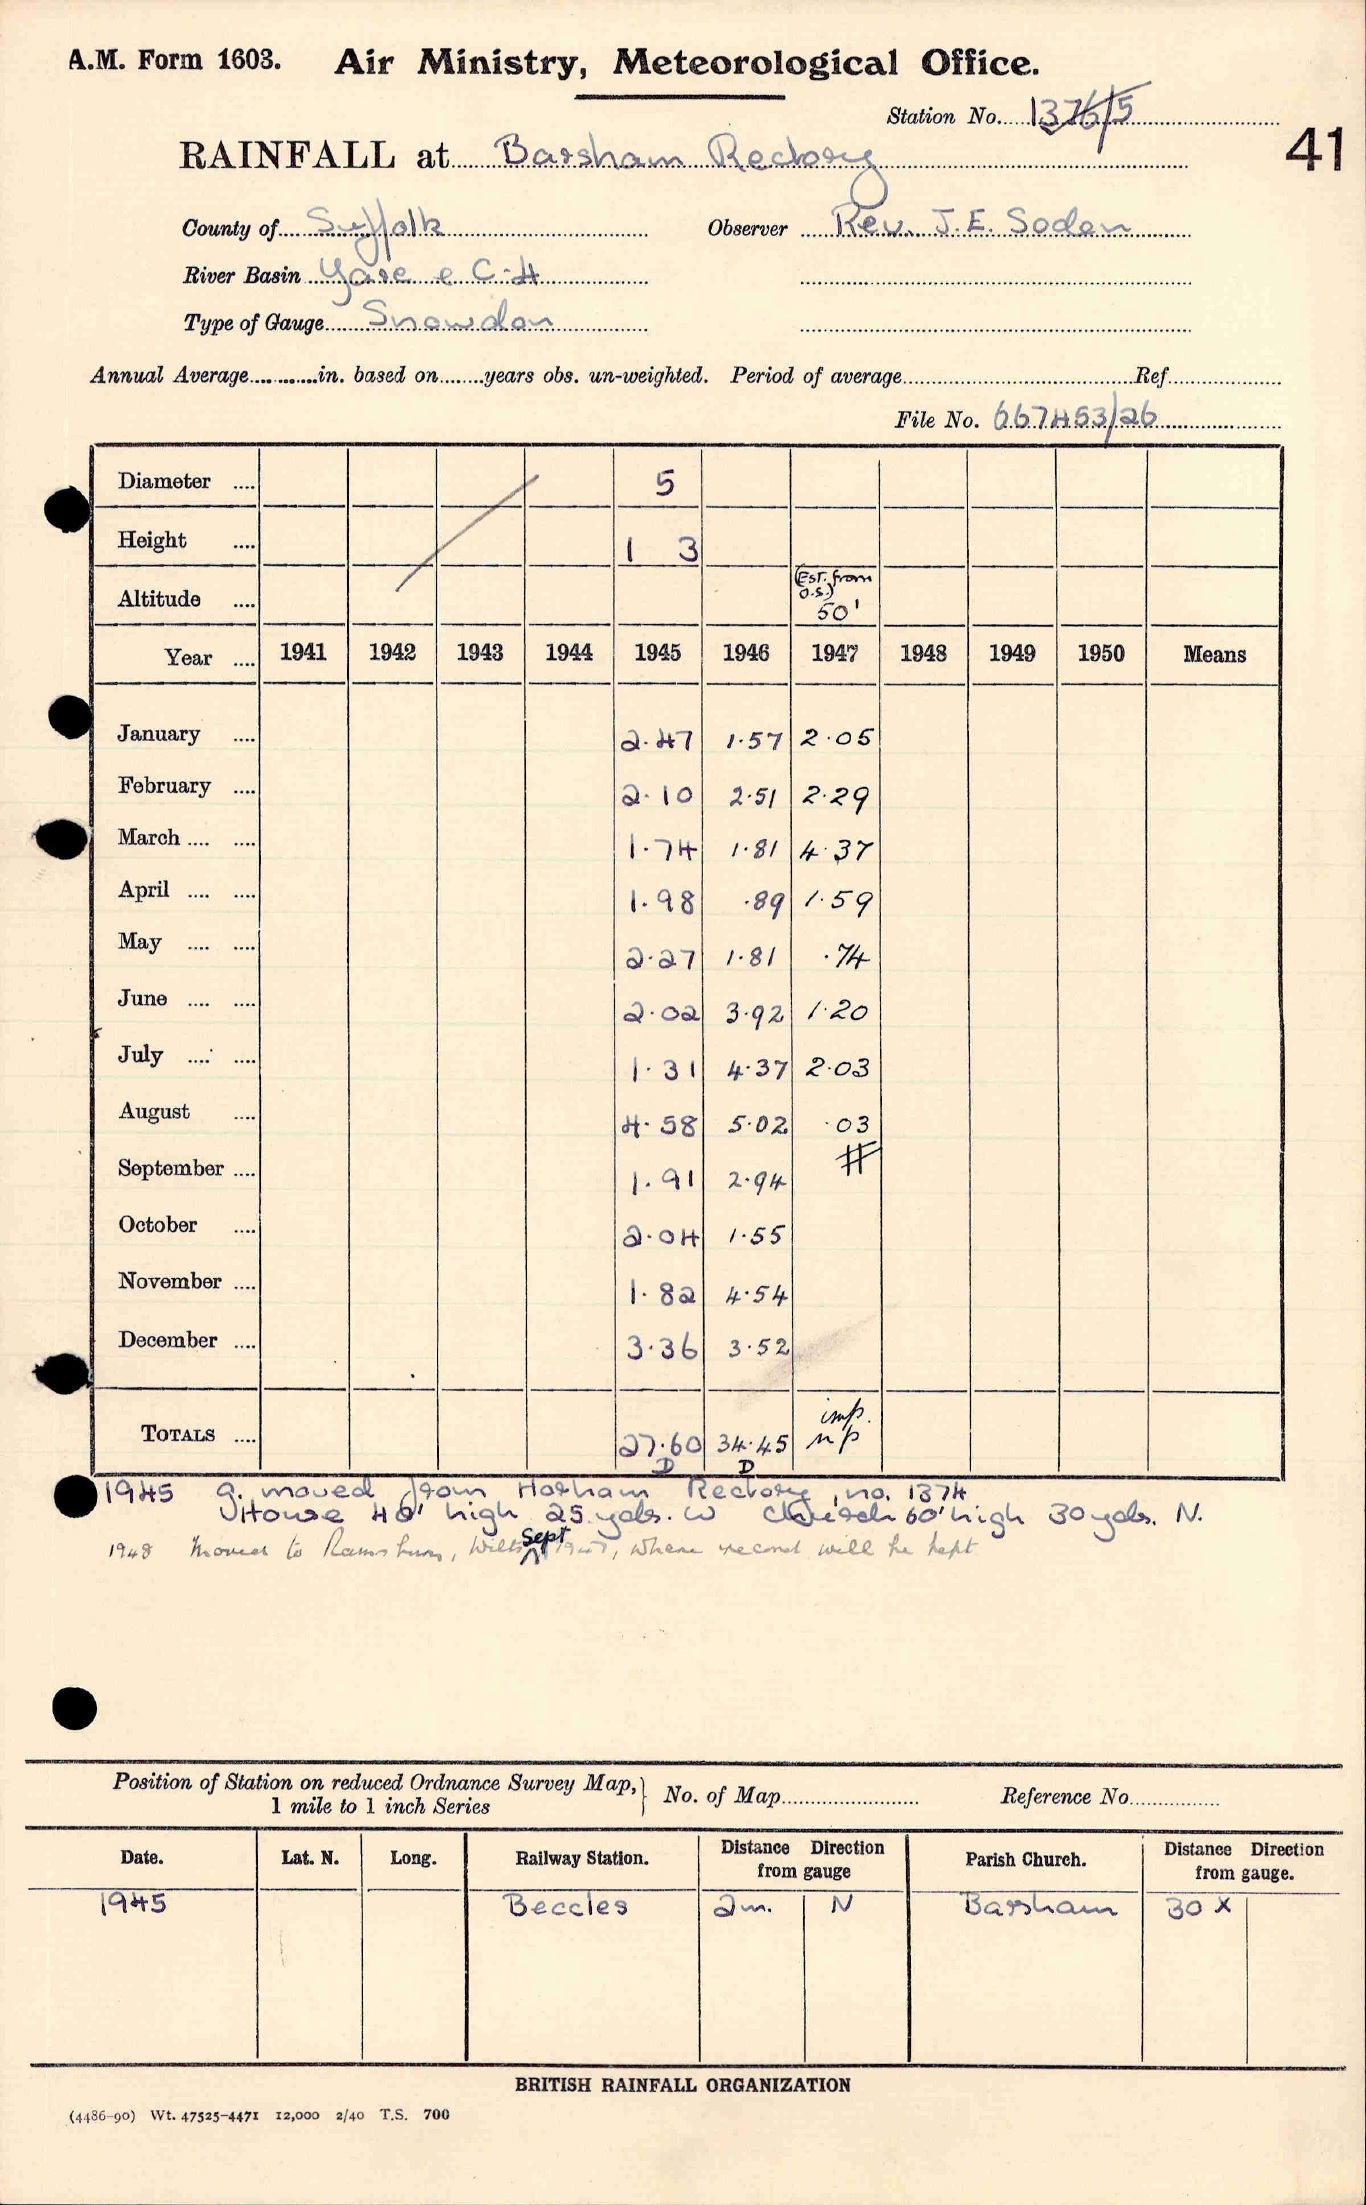 A.M. Form 1603. Air Ministry, Meteorological Office.
Station No. 1376/5
41
RAINFALL at Barsham Rectory
County of Suffolk Observer Rev. J. E. Soden
River Basin Yare e C.H
Type of Gauge Snowdon
Annual Average in. based on years obs. un-weighted. Period of average Ref.
File No. 667453/26
Diameter 5
Height 1 3
Altitude (Est. from O.S.) 50'
Year 1941 1942 1943 1944 1945 1946 1947 1948 1949 1950 Means
January 2.47 1.57 2.05
February 2.10 2.51 2.29
March 1.74 1.81 4.37
April 1.98 .89 1.59
May 2.27 1.81 .74
June 2.02 3.92 1.20
July 1.31 4.37 2.03
August 4.58 5.02 .03
September 1.91 2.94 #
October 2.04 1.55
November 1.82 4.54
December 3.36 3.52
TOTALS 27.60 34.45 imp. np
D D
1945 g. moved from Horham Rectory, no. 1374
House 40' high 25 yds. W Church 60' high 30 yds. N.
1948 Moved to Ramsbury, Wilts Sept 1947, where record will be kept
Position of Station on reduced Ordnance Survey Map, 1 mile to 1 inch Series } No. of Map Reference No.
Date. Lat. N. Long. Railway Station. Distance Direction from gauge Parish Church. Distance Direction from gauge.
1945 Beccles 2m. N Barsham 30 x
BRITISH RAINFALL ORGANIZATION
(4486-90) Wt. 47525-4471 12,000 2/40 T.S. 700